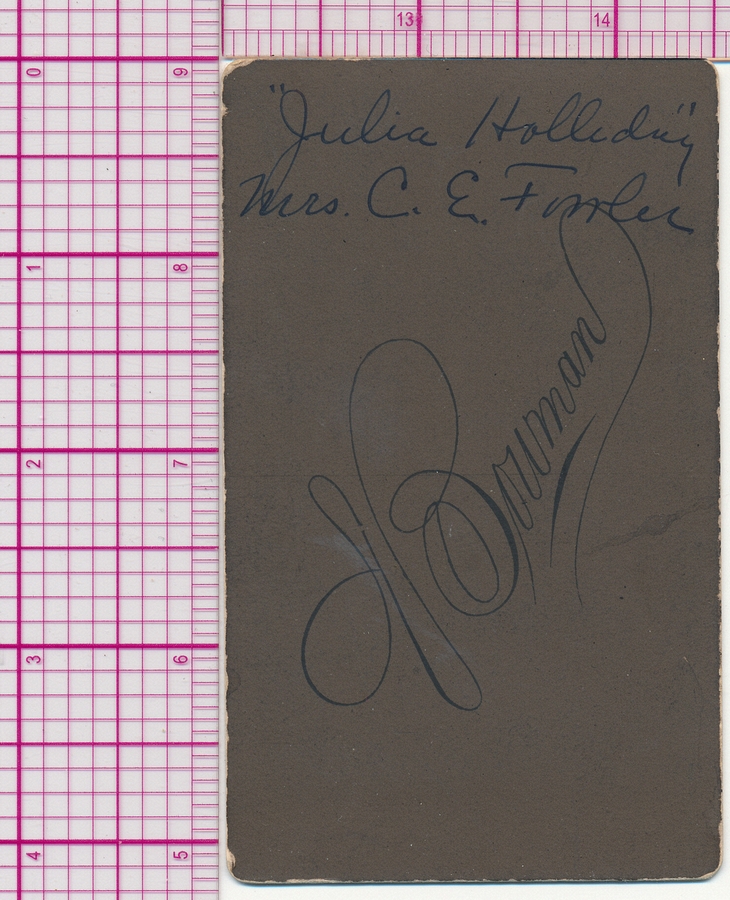 13 14
0 9
"Julia Holliday"
Mrs. C. E. Fowler
1 8
Bowman
2 7
3 6
4 5